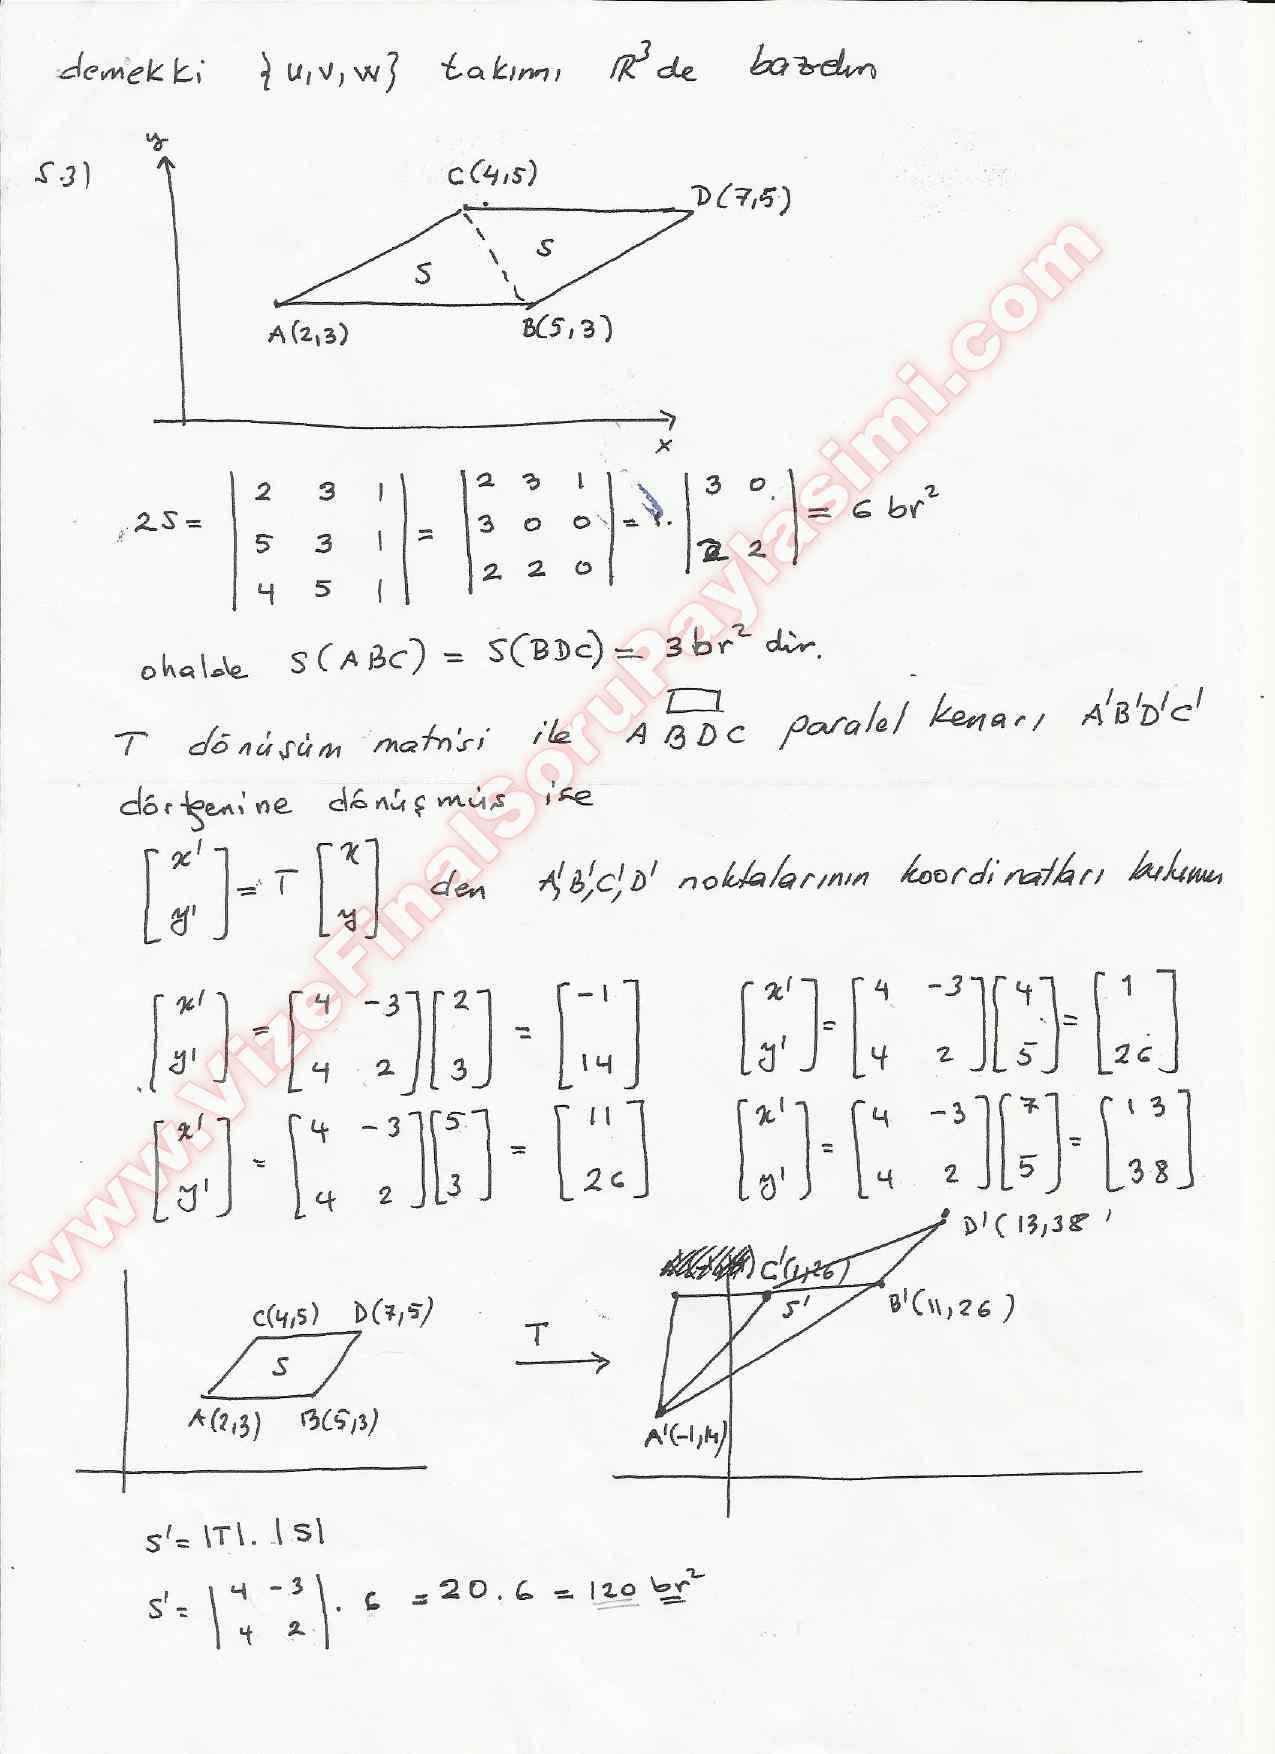 demekki {u,v,w} takımı R³ de bazdır
S.3)
y
C(4,5)
D(7,5)
S
S
A(2,3)
B(5,3)
x
2S = | 2 3 1 | = | 2 3 1 | = 1. | 3 0 | = 6 br²
| 5 3 1 | | 3 0 0 | | 2 2 |
| 4 5 1 | | 2 2 0 |
ohalde S(ABC) = S(BDC) = 3br² dir.
T dönüşüm matrisi ile ABDC paralel kenarı A'B'D'C'
dörtgenine dönüşmüş ise
[x' y'] = T [x y] den A',B',C',D' noktalarının koordinatları bulunur
[x' y'] = [4 -3 4 2] [2 3] = [-1 14] [x' y'] = [4 -3 4 2] [4 5] = [1 26]
[x' y'] = [4 -3 4 2] [5 3] = [11 26] [x' y'] = [4 -3 4 2] [7 5] = [13 38]
D'(13,38
C'(1,26)
B'(11,26)
S'
A'(-1,14)
C(4,5) D(7,5)
S
A(2,3) B(5,3)
T
S' = |T|. |S|
S' = | 4 -3 4 2 | . 6 = 20.6 = 120 br²
www.VizeFinalSoruPaylasimi.com